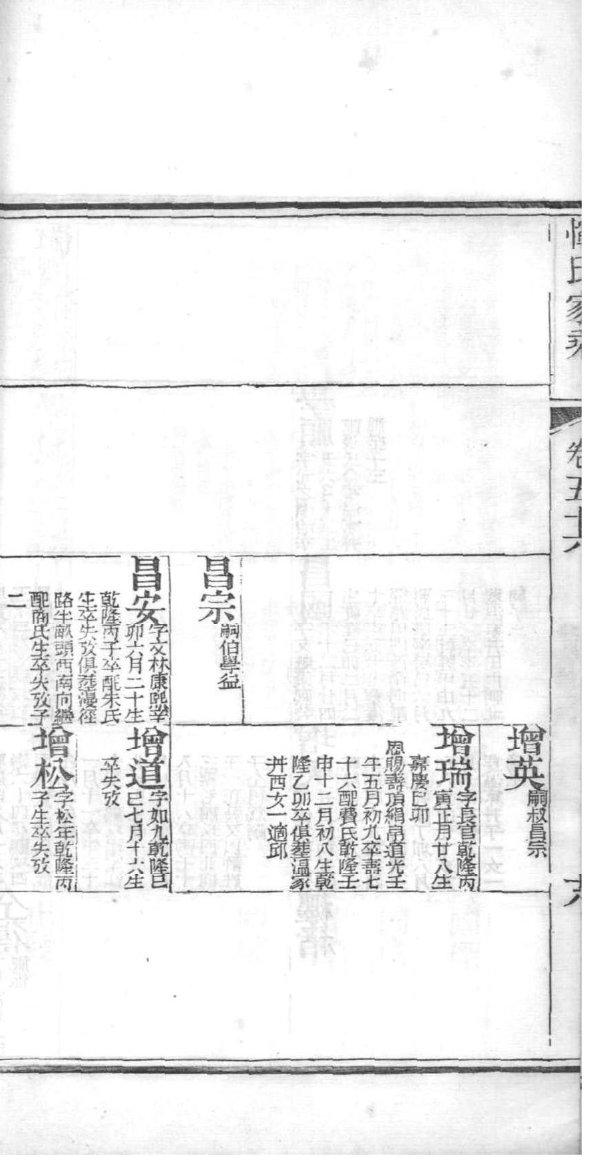 惲氏家乘
卷五十八
十八
增英
嗣叔昌宗
增瑞
字長官乾隆丙
寅正月廿八生
嘉慶己卯
恩賜壽頂絹帛道光壬
午五月初九卒壽七
十六配費氏乾隆壬
申十二月初八生乾
隆乙卯卒俱葬溫家
井西女一適邱
昌宗
嗣伯學益
昌安
字文林康熙辛
卯六月二十生
乾隆丙子卒配朱氏
生卒失攷俱葬漫徑
路半畝頭西南向繼
配蔣氏生卒失攷子
二
增道
字如九乾隆己
巳七月十六生
卒失攷
增松
字松年乾隆丙
子生卒失攷